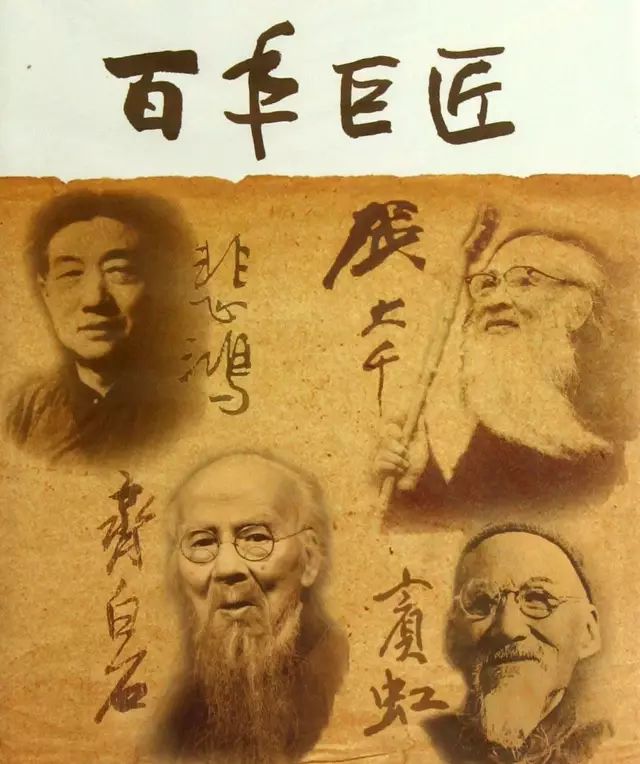 百年巨匠
悲鴻
張大千
齊白石
賓虹